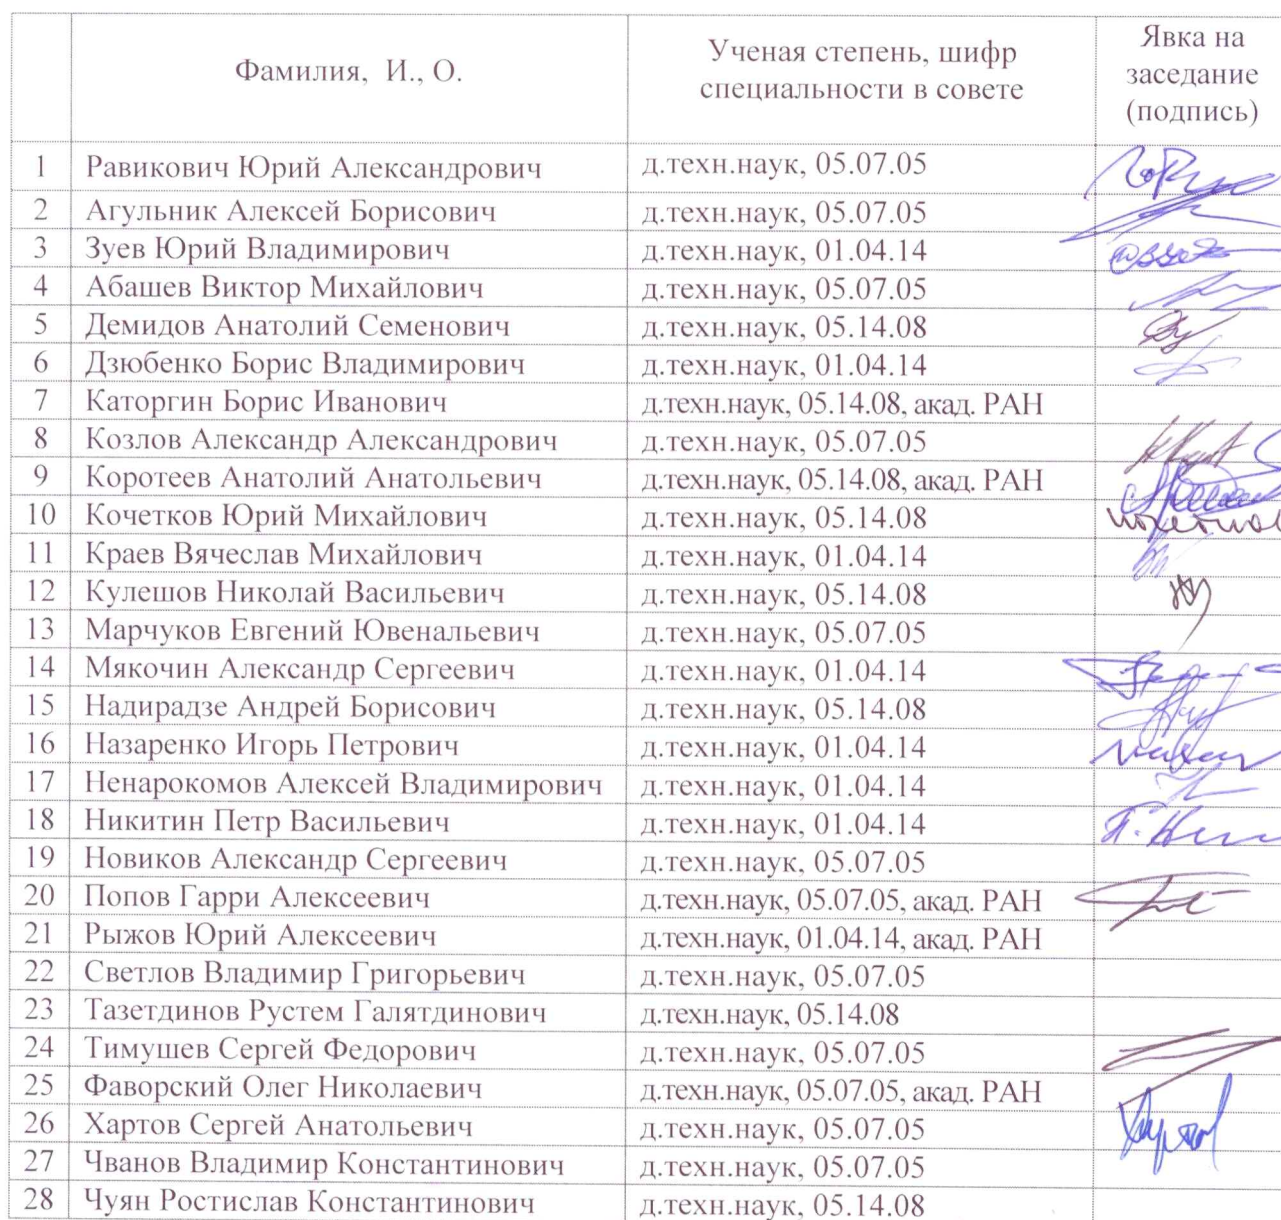 Фамилия, И., О.
Ученая степень, шифр
специальности в совете
Явка на
заседание
(подпись)
1 Равикович Юрий Александрович д.техн.наук, 05.07.05
2 Агульник Алексей Борисович д.техн.наук, 05.07.05
3 Зуев Юрий Владимирович д.техн.наук, 01.04.14
4 Абашев Виктор Михайлович д.техн.наук, 05.07.05
5 Демидов Анатолий Семенович д.техн.наук, 05.14.08
6 Дзюбенко Борис Владимирович д.техн.наук, 01.04.14
7 Каторгин Борис Иванович д.техн.наук, 05.14.08, акад. РАН
8 Козлов Александр Александрович д.техн.наук, 05.07.05
9 Коротеев Анатолий Анатольевич д.техн.наук, 05.14.08, акад. РАН
10 Кочетков Юрий Михайлович д.техн.наук, 05.14.08
11 Краев Вячеслав Михайлович д.техн.наук, 01.04.14
12 Кулешов Николай Васильевич д.техн.наук, 05.14.08
13 Марчуков Евгений Ювенальевич д.техн.наук, 05.07.05
14 Мякочин Александр Сергеевич д.техн.наук, 01.04.14
15 Надирадзе Андрей Борисович д.техн.наук, 05.14.08
16 Назаренко Игорь Петрович д.техн.наук, 01.04.14
17 Ненарокомов Алексей Владимирович д.техн.наук, 01.04.14
18 Никитин Петр Васильевич д.техн.наук, 01.04.14
19 Новиков Александр Сергеевич д.техн.наук, 05.07.05
20 Попов Гарри Алексеевич д.техн.наук, 05.07.05, акад. РАН
21 Рыжов Юрий Алексеевич д.техн.наук, 01.04.14, акад. РАН
22 Светлов Владимир Григорьевич д.техн.наук, 05.07.05
23 Тазетдинов Рустем Галятдинович д.техн.наук, 05.14.08
24 Тимушев Сергей Федорович д.техн.наук, 05.07.05
25 Фаворский Олег Николаевич д.техн.наук, 05.07.05, акад. РАН
26 Хартов Сергей Анатольевич д.техн.наук, 05.07.05
27 Чванов Владимир Константинович д.техн.наук, 05.07.05
28 Чуян Ростислав Константинович д.техн.наук, 05.14.08